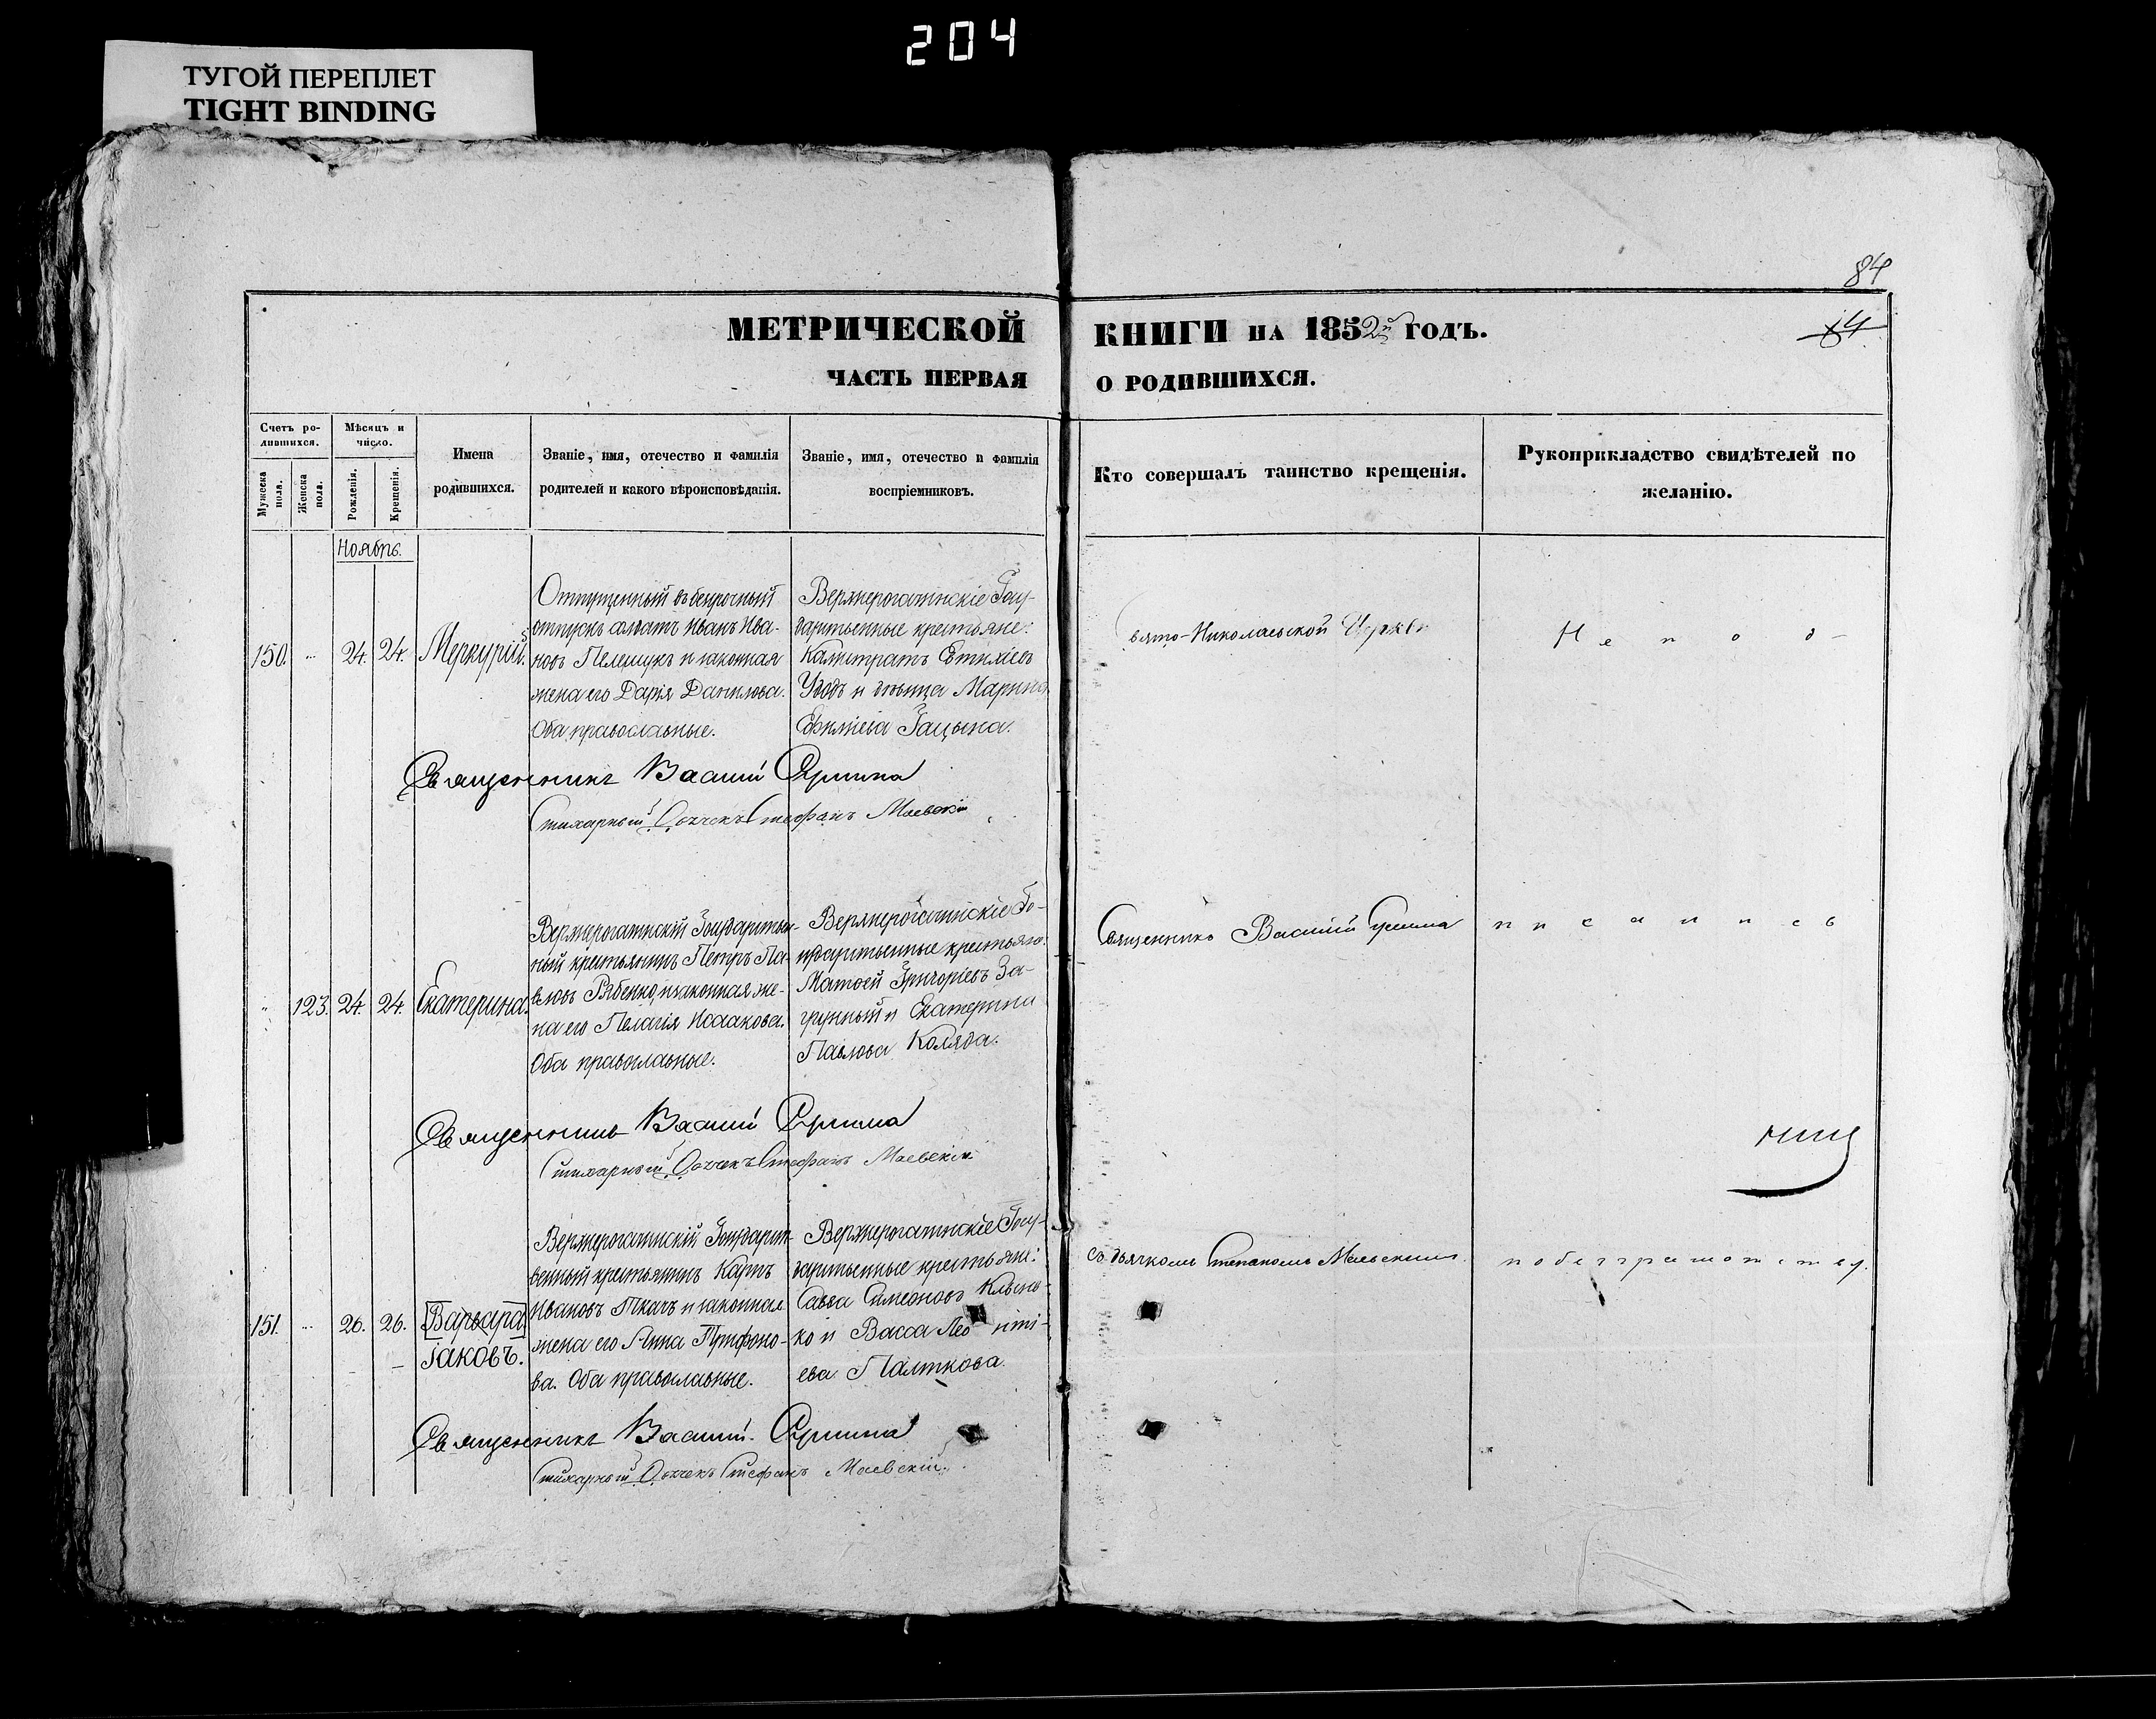 204
ТУГОЙ ПЕРЕПЛЕТ
TIGHT BINDING
84
МЕТРИЧЕСКОЙ КНИГИ НА 1852й ГОДЪ.
ЧАСТЬ ПЕРВАЯ О РОДИВШИХСЯ.
Счетъ ро-
дившихся.
Мужеска пола.
Женска пола.
Мѣсяцъ и
число.
Рожденія.
Крещенія.
Имена
родившихся.
Званіе, имя, отечество и фамилія
родителей и какого вѣроисповѣданія.
Званіе, имя, отечество и фамилія
воспріемниковъ.
Кто совершалъ таинство крещенія.
Рукоприкладство свидѣтелей по
желанію.
Ноябрь.
150. 24. 24. Меркурій.
Отпущенный въ безсрочный
отпускъ солдатъ Иванъ Ива-
новъ Пелешукъ и законная
жена его Дарія Данилова.
Оба православные.
Верхнерогачинскіе Госу-
дарственные крестьяне:
Калистратъ
и дѣвица Марина
Зацына.
Свято-Николаевской Церкви
Н е п о д -
Священникъ Василій
Стихарный Дьячекъ Стефанъ Маевскій
123. 24. 24. Екатерина.
Верхнерогачинскій Государствен-
ный крестьянинъ Петръ Па-
вловъ Рябенко, и законная же-
на его Пелагія Исаакова.
Оба православные.
Верхнерогачинскіе Го-
сударственные крестьяне:
Матѳей Григоріевъ За-
и Екатерина
Павлова Коляда.
Священникъ Василій
п и с а л и с ь
Священникъ Василій
Стихарный Дьячекъ Стефанъ Маевскій
151. 26. 26. [Варвара]
Іаковъ.
Верхнерогачинскій Государст-
венный крестьянинъ Карпъ
Ивановъ Ткачъ и законная
жена его Анна Трифоно-
ва. Оба православные.
Верхнерогачинскіе Госу-
дарственные крестьяне:
Савва Симеоновъ
и Васса
ева
съ дьячкомъ Стефаномъ Маевскимъ.
п о б е з г р а м о т с т в у.
Священникъ Василій
Стихарный Дьячекъ Стефанъ Маевскій